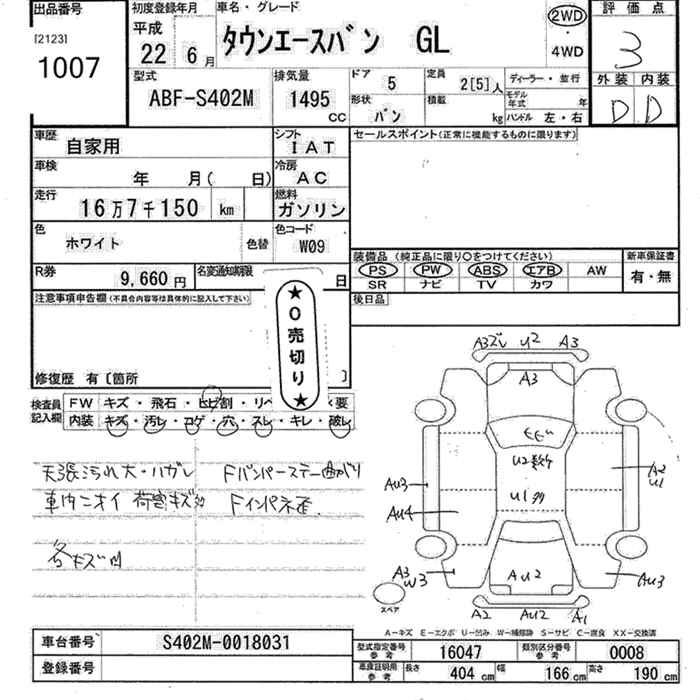 出品番号
[2123]
1007
初度登録年月
平成
22年 6月
車名・グレード
タウンエースバン GL
2WD
・
4WD
評価点
3
外装 内装
D D
型式
ABF-S402M
排気量
1495 CC
ドア 5
形状 バン
定員 2[5]人
積載 kg
ディーラー・並行
モデル年式 年
ハンドル 左・右
車歴 自家用
シフト IAT
セールスポイント(正常に機能するものに限ります)
車検 年 月( 日)
冷房 AC
走行 16万7千150 km
燃料 ガソリン
色 ホワイト 色替
色コード W09
装備品 (純正品に限り○をつけてください)
PS PW ABS エアB AW
SR ナビ TV カワ
新車保証書
有・無
R券 9,660円
名変通知期限 日
後日品
注意事項申告欄(不具合内容等は具体的に記入して下さい)
★0売切り★
修復歴 有〔箇所 〕
検査員記入欄
FW キズ・飛石・ヒビ割・リペ 要
内装 キズ・汚レ・コゲ・穴・スレ・キレ・破レ
天張汚れ大・ハガレ Fバンパーステー曲がり
車内ニオイ 荷室キズ Fインパネ歪
各キズ凹
A3ズレ U2 A3
A3
U2数ケ
U1多
AU3
AU4
A2
U1
A3
W3
AU2
AU3
A2 AU2 A1
スペア
A－キズ E－エクボ U－凹み W－補修跡 S－サビ C－腐食 XX－交換済
車台番号 S402M-0018031
登録番号
型式指定番号 参考 16047
類別区分番号 参考 0008
車庫証明用 参考 長さ 404 cm 幅 166 cm 高さ 190 cm